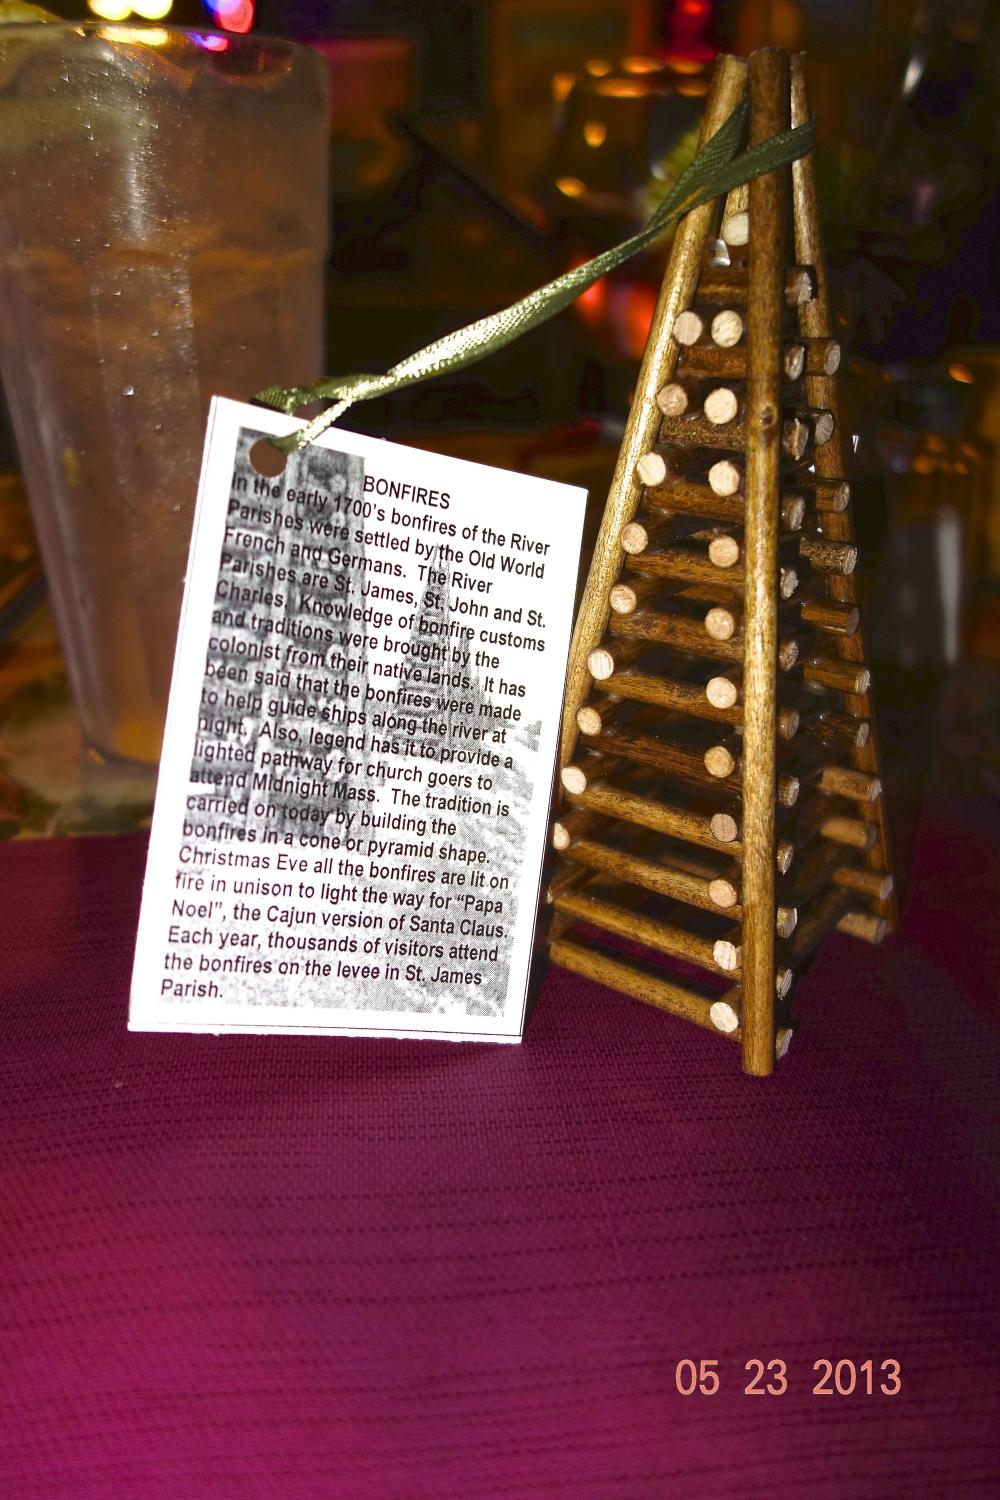 BONFIRES
In the early 1700's bonfires of the River
Parishes were settled by the Old World
French and Germans. The River
Parishes are St. James, St. John and St.
Charles. Knowledge of bonfire customs
and traditions were brought by the
colonist from their native lands. It has
been said that the bonfires were made
to help guide ships along the river at
night. Also, legend has it to provide a
lighted pathway for church goers to
attend Midnight Mass. The tradition is
carried on today by building the
bonfires in a cone or pyramid shape.
Christmas Eve all the bonfires are lit on
fire in unison to light the way for “Papa
Noel”, the Cajun version of Santa Claus.
Each year, thousands of visitors attend
the bonfires on the levee in St. James
Parish.
05 23 2013